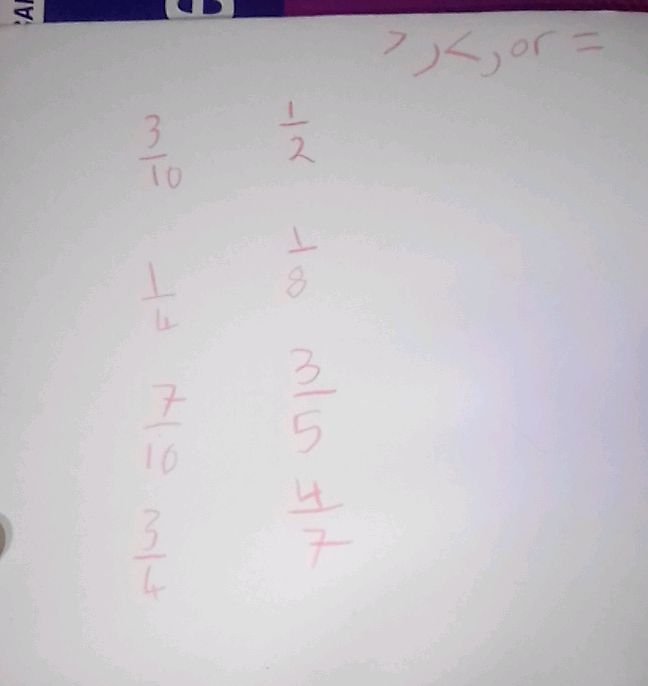 >, <, or =
3/10 1/2
1/4 1/8
7/10 3/5
3/4 4/7